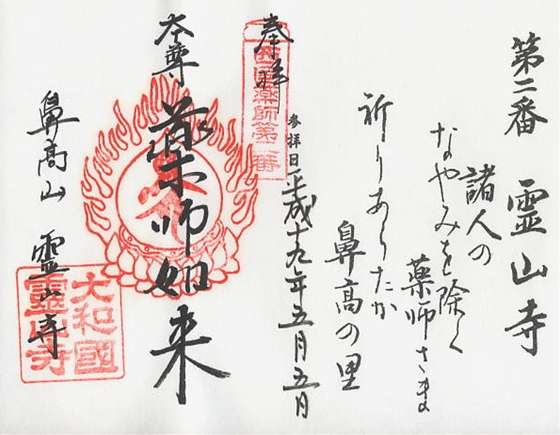 第二番 霊山寺
諸人の
なやみを除く
薬師さま
祈りあらたか
鼻高の里
奉拝
参拝日 平成十九年五月五日
本尊 薬師如来
鼻高山 霊山寺
大和國
靈山寺